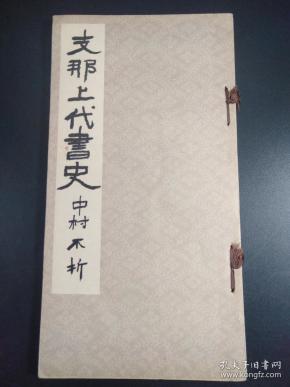 支那上代書史
中村不折
孔夫子旧书网